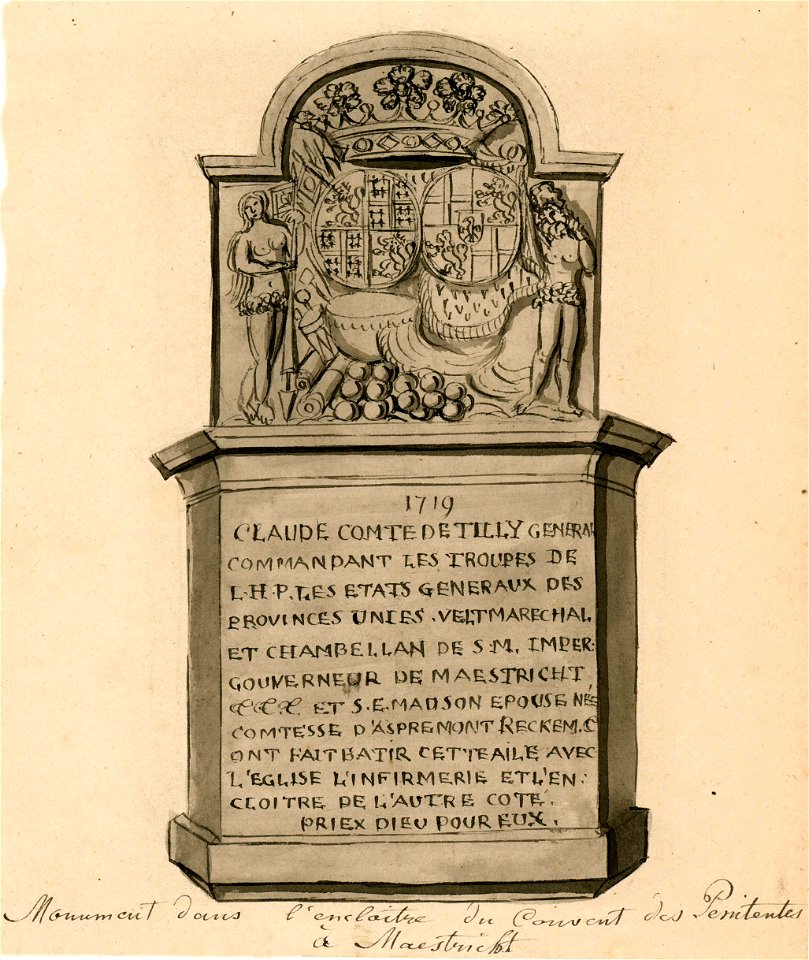 1719
CLAUDE COMTE DE TILLY GENERAL
COMMANDANT LES TROUPES DE
L.H.P. LES ETATS GENERAUX DES
PROVINCES UNIES. VELTMARECHAL
ET CHAMBELLAN DE S.M. IMPER:
GOUVERNEUR DE MAESTRICHT
&&& ET S.E. MADSON EPOUSE NÉE
COMTESSE D'ASPREMONT RECKEM. C
ONT FAIT BATIR CETTE AILE AVEC
L'EGLISE L'INFIRMERIE ET L'EN:
CLOITRE DE L'AUTRE COTE.
PRIEX DIEU POUR EUX.
Monument dans l'encloitre du Convent des Penitentes
à Maestricht